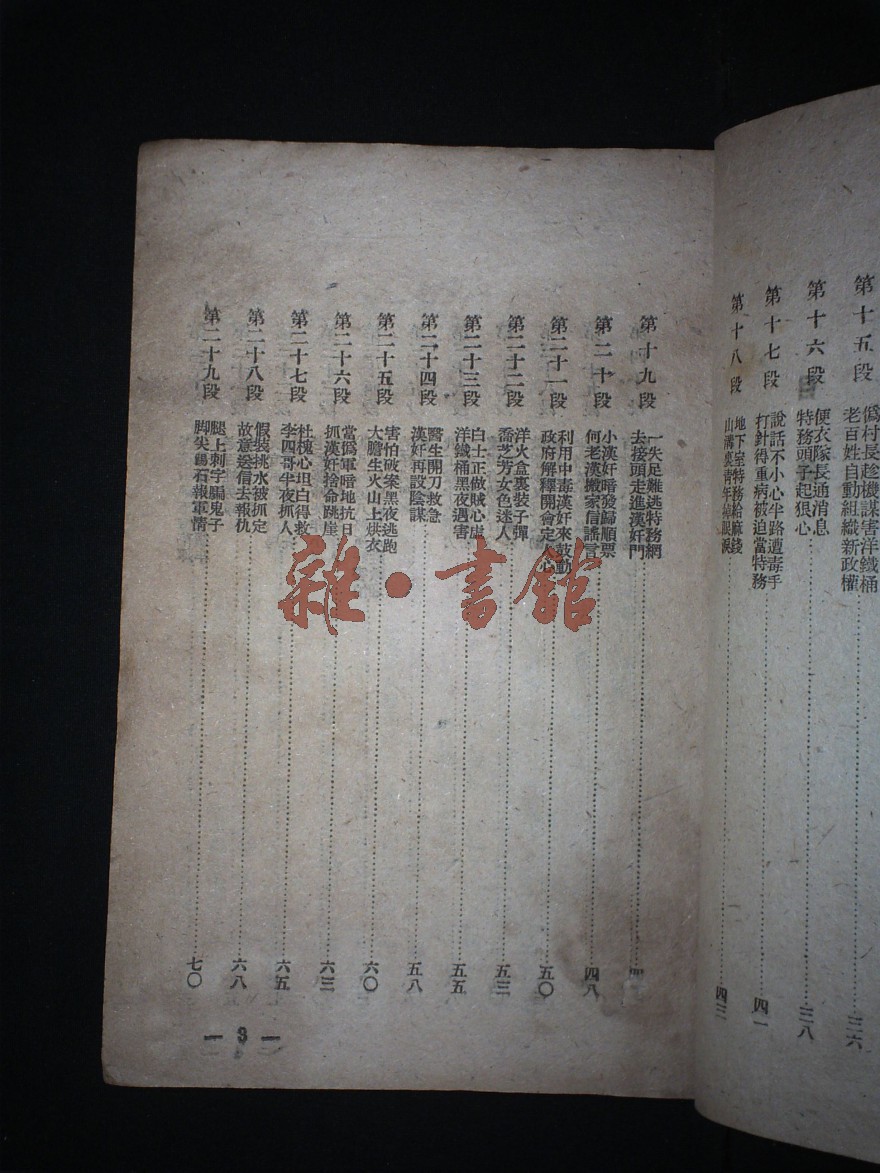 第十五段
僞村長趁機謀害洋鐵桶
老百姓自動組織新政權
三六
第十六段
便衣隊長通消息
特務頭子起狠心
三八
第十七段
說話不小心半路遭毒手
打針得重病被迫當特務
四一
第十八段
地下室特務給麻錢
山溝裏青年掃眼淚
四三
第十九段
一失足難逃特務網
去接頭走進漢奸門
第二十段
小漢奸暗發歸順票
何老漢搬家信謠言
四八
第二十一段
利用中毒漢奸來鼓動
政府解釋開會定人心
五〇
第二十二段
洋火盒裏裝子彈
喬芝芳女色迷人
五三
第二十三段
白士正做賊心虛
洋鐵桶黑夜遇害
五五
第二十四段
醫生開刀救急
漢奸再設陰謀
五八
第二十五段
害怕破案黑夜逃跑
大膽生火山上烘衣
六〇
第二十六段
當僞軍暗地抗日
抓漢奸捨命跳崖
六三
第二十七段
杜槐心坦白得救
李四哥半夜抓人
六五
第二十八段
假裝挑水被抓定
故意送信去報仇
六八
第二十九段
腿上刺字關鬼子
脚尖錫石報軍情
七〇
— 3 —
雜·書館